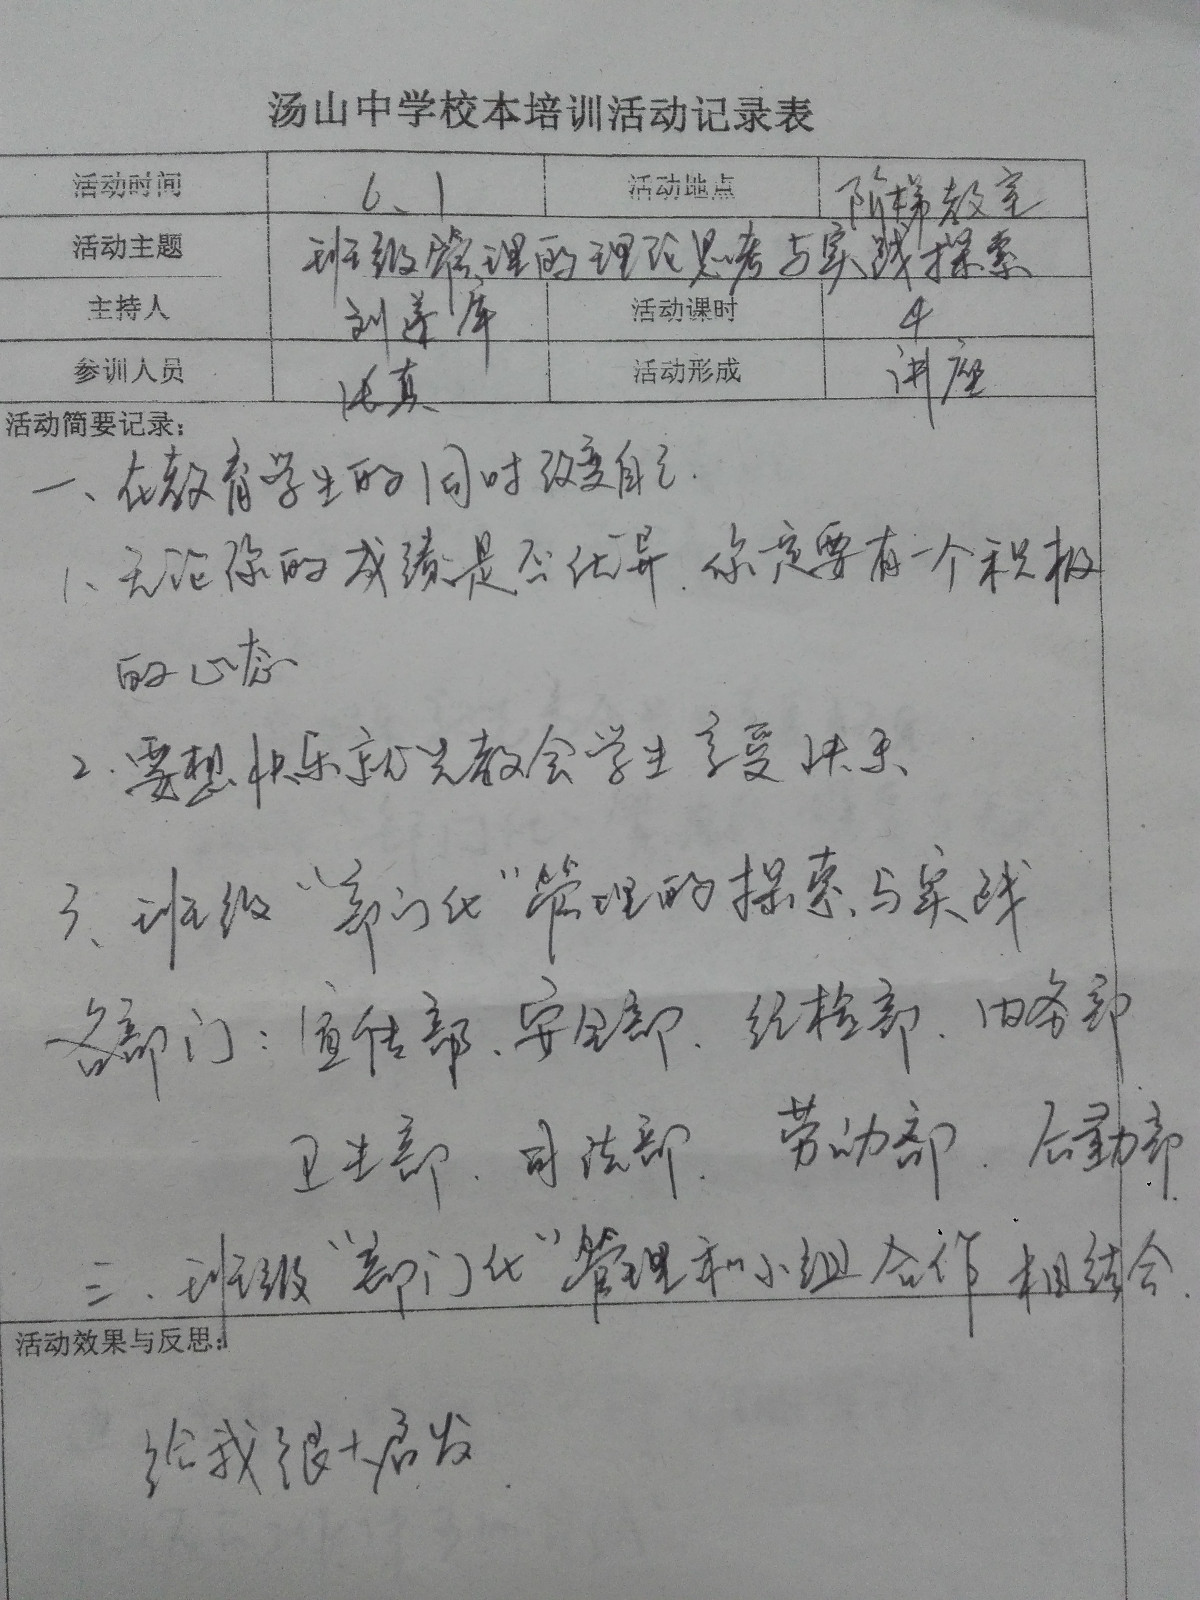 汤山中学校本培训活动记录表
活动时间 6、1 活动地点 阶梯教室
活动主题 班级管理的理论思考与实践探索
主持人 刘 库 活动课时 4
参训人员 张真 活动形成 讲座
活动简要记录:
一、在教育学生的同时改变自己.
1、无论你的成绩是否优异.你一定要有一个积极
的心态
2.要想快乐就先教会学生享受快乐
3、班级“部门化”管理的探索与实践
各部门:宣传部、安全部、纪检部、内务部
卫生部、司法部、劳动部、后勤部.
三、班级“部门化”管理和小组合作相结合.
活动效果与反思:
给我很大启发.